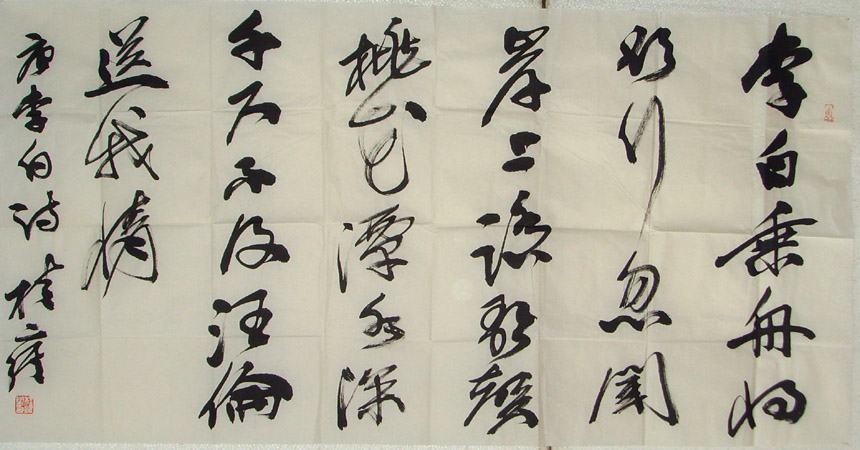 李白乘舟将
欲行忽聞
岸上踏歌聲
桃花潭水深
千尺不及汪倫
送我情
唐李白詩 桂